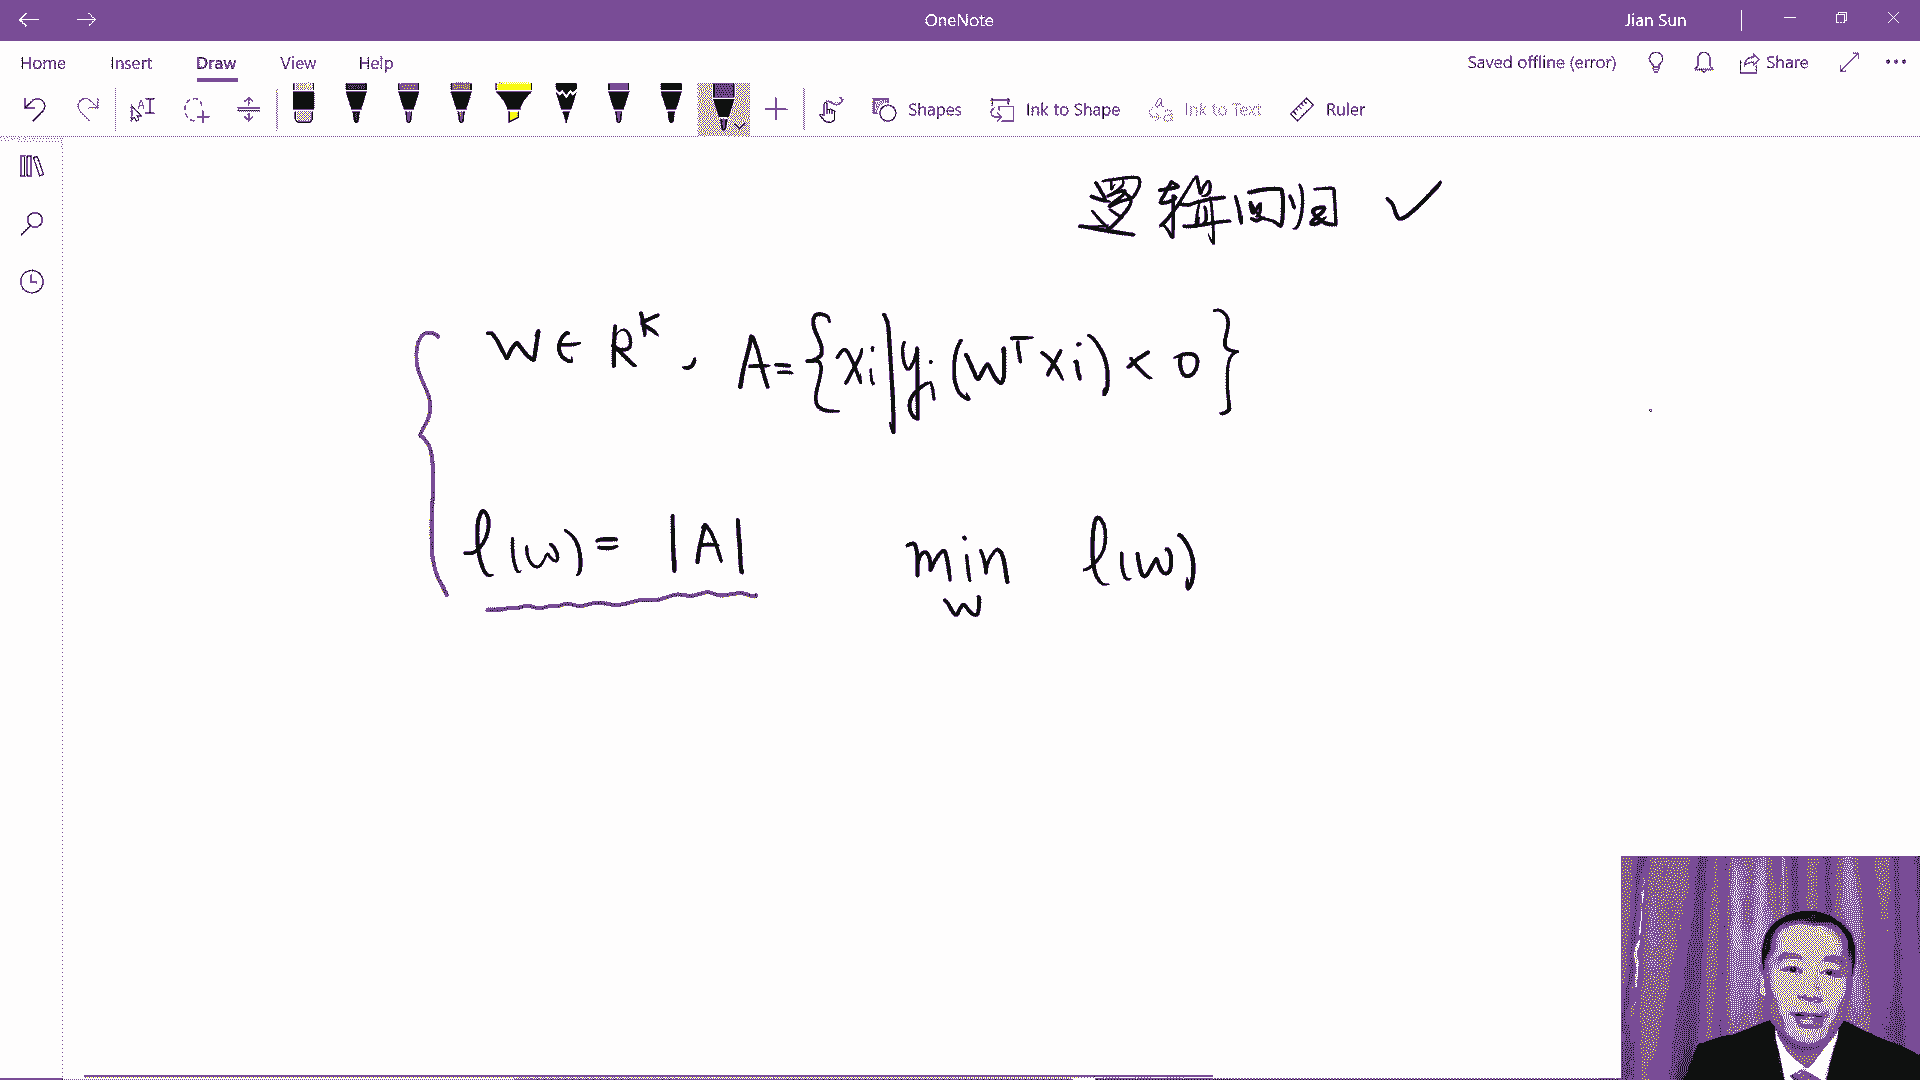 OneNote
Jian Sun
Home Insert Draw View Help
Saved offline (error)
Share
Shapes
Ink to Shape
Ink to Text
Ruler
逻辑回归 ✓
W ∈ R^K , A = {xi | yi (W^T xi) < 0}
l(w) = |A| min l(w)
W